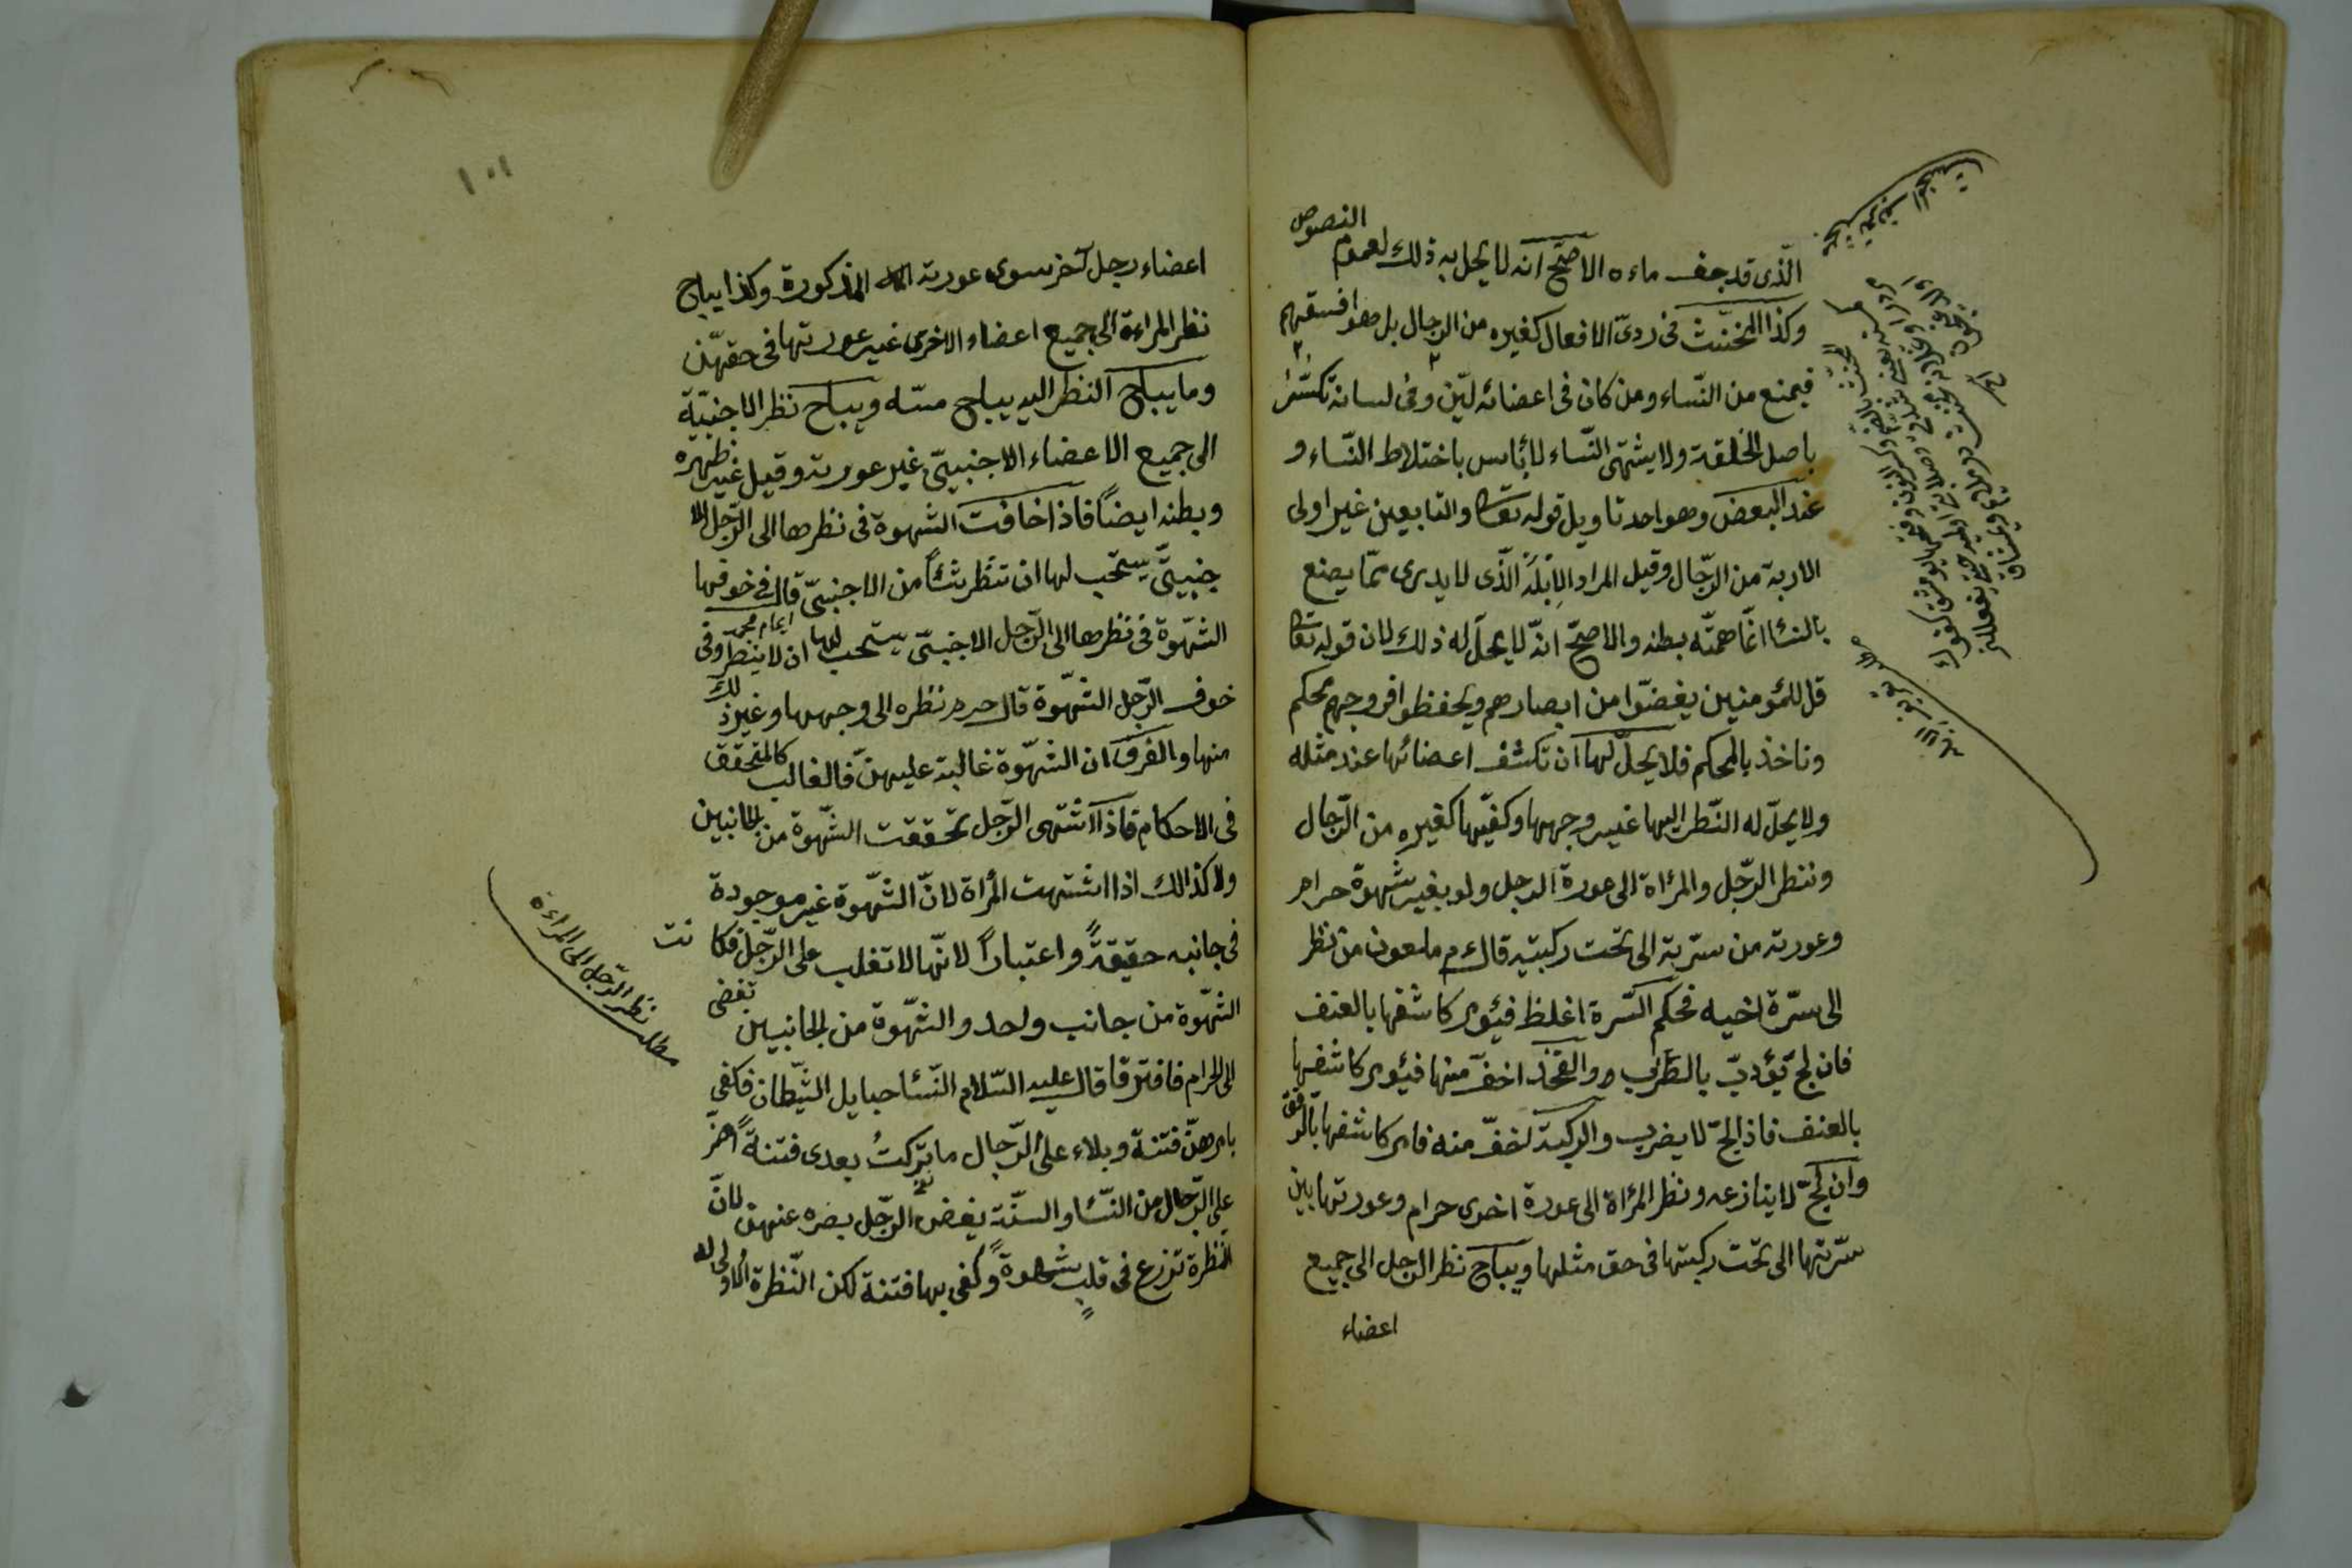 الّذى قد جف ماءه الاصحّ انه لا يحل به ذلك لعموم النصوص
وكذا المخنّث فى ردىّ الافعال كغيره من الرجال بل هو افسقهم
فيمنع من النّساء ومن كان فى اعضائه ليّن وفى لسانه تكسّر
باصل الخلقة ولا يشتهى النّساء لا بأس باختلاط النّساء و
عند البعض وهو احد تاويل قوله تعا والتابعين غير اولى
الاربة من الرّجال وقيل المراد الابله الّذى لا يدرى ممّا يصنع
بالنسا انّما همّته بطنه والاصحّ انّه لا يحلّ له ذلك لان قوله تعا
قل للمؤمنين يغضّوا من ابصارهم ويحفظوا فروجهم محكم
وناخذ بالمحكم فلا يحلّ لها ان تكشف اعضائها عند مثله
ولا يحلّ له النّظر اليها غير وجهها وكفّيها كغيره من الرّجال
وننظر الرّجل والمرأة الى عورة الرجل ولو بغير شهوة حرام
وعورته من سرّته الى تحت ركبتيه قال م ملعون من نظر
الى سرّة اخيه فحكم السّرة اغلظ فيؤمر كاشفها بالعنف
فان لجّ يؤدبّ بالضّرب والفخذ اخفّ منها فيؤمر كاشفها
بالعنف فاذا لجّ لا يضرب والركبة اخفّ منه فامر كاشفها بالرفق
وان لجّ لا ينازعه ونظر المرأة الى عورة اخرى حرام وعورتها بين
سرّتها الى تحت ركبتها فى حق مثلها ويباح نظر الرجل الى جميع
اعضاء
١٠١
اعضاء رجل آخر سوى عورته المذكورة وكذا يباح
نظر المراءة الى جميع اعضاء الاخرى غير عورتها فى حقهّن
وما يباح النظر اليه يباح مسّه ويباح نظر الاجنبيّة
الى جميع الاعضاء الاجنبيّ غير عورته وقيل غير ظهره
وبطنه ايضاً فاذا خافت الشهوة فى نظرها الى الرّجل الا
جنبيّ يستحّب لها ان تنظر شئاً من الاجنبيّ قال فى خوفها
الشهّوة فى نظرها الى الرّجل الاجنبىّ يستحب لها ان لا ينظر وفى
امام محمد
خوف الرّجل الشهّوة قال حرم نظره الى وجهها وغير ذلك
منها والفرق ان الشهّوة غالبة عليهنّ فالغالب كالمتحقق
فى الاحكام فاذا اشتهى الرّجل تحققت الشهّوة من الجانبين
ولا كذالك اذا اشتهت المرأة لانّ الشهّوة غير موجودة
فى جانبه حقيقةً واعتباراً لانّها لا تغلب على الرّجل فكانت
الشهّوة من جانب واحد والشهّوة من الجانبين تفضى
الى الحرام فافترقا قال عليه السّلام النّسا حبايل الشّيطان فكفى
بامرهنّ فتنة وبلاء على الرّجال ما تركتُ بعدى فتنةً اضرّ
على الرّجال من النّسا والسنّة يغض الرّجل بصره عنهن لانّ
النظرة تزرع فى قلبٍ شهوةً وكفى بها فتنة لكن النّظرة الاولى له
مطلب نظر الرّجل الى المراءة